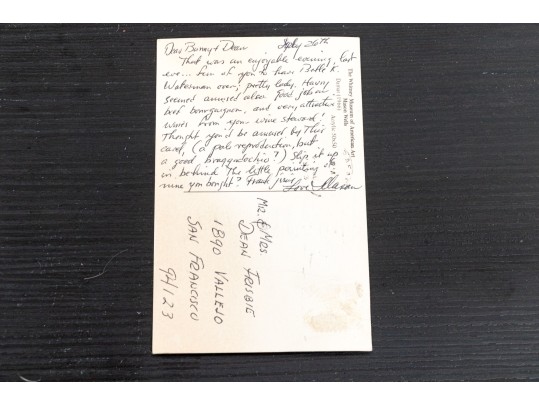 Dear Bunny & Dean July 26th
That was an enjoyable evening, last
eve... fun of you to have Belle K.
Waterman over, pretty lady. Harry
seemed amused also. Good job on
beef bourgogne, and very attractive
wines from your wine steward.
Thought you'd be amused by this
card, (a pale reproduction, but
a good braggadochio?) Slip it up
in behind the little painting of
mine you bought? Frank
Love, Mason
The Whitney Museum of American Art
Mason Wells
Acrylic
MR. & MRS.
DEAN FRISBIE
1890 VALLEJO
SAN FRANCISCO
94123